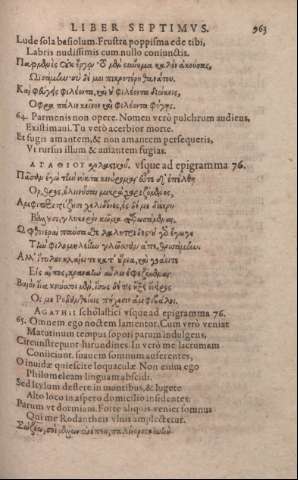 LIBER SEPTIMVS. 963
Lude sola basiolum. Frustra poppisma ede tibi,
Labris nudissimis cum nullo coniunctis.
Παρμενὶς οὐκ ἔργῳ· τὸ μὲν οὔνομα καλὸν ἀκούσας,
Ὠϊσάμην· σὺ δέ μοι πικροτέρη θανάτου.
Καὶ φεύγεις φιλέοντα, καὶ οὐ φιλέοντα διώκεις,
Ὄφρα πάλιν κεῖνον καὶ φιλέοντα φύγῃς.
64. Parmenis non opere. Nomen verò pulchrum audiens,
Existimaui. Tu verò acerbior morte.
Et fugis amantem, & non amantem persequeris,
Vt rursus illum & amantem fugias.
ΑΓΑΘΙΟΥ σχολαστικοῦ. vsque ad epigramma 76.
Πᾶσαν ἐγὼ τὴν νύκτα κινύρομαι· εὖτε δ' ἐπέλθῃ
Ὄρθρος ἐλινῦσαι μικρὰ χαριζόμενος,
Ἀμφιπεριτρύζουσι χελιδόνες, ἐς δέ με δάκρυ
Βάλλουσιν, γλυκερὸν κῶμα
Ὄμματα
Τὴν Φιλομηλείην γλῶσσαν
Ἀλλ' Ἴτυλον κλαίοιτε κατ' οὔρεα, καὶ γοάοιτε
Εἰς ἔποπος κραναὴν αὖλιν ἐφεζόμεναι,
Βαιὸν ἵνα κνώσσοιμεν, ἴσως δέ τις ἥξει ὄνειρος
Ὅς με Ῥοδανθείοις πήχεσιν ἀμφιβάλοι.
AGATHII scholastici vsque ad epigramma 76.
65. Omnem ego noctem lamentor. Cum verò veniat
Matutinum tempus sopori parum indulgens,
Circunstrepunt hirundines. In verò me lacrumam
Coniiciunt suauem somnum auferentes,
O inuidæ quiescite loquaculæ. Non enim ego
Philomeleam linguam abscidi.
Sed Itylum deflete in montibus, & lugete
Alto loco in aspero domicilio insidentes
Parum vt dormiam. Forte aliquis veniet somnus
Qui me Rodantheis vlnis amplectetur.